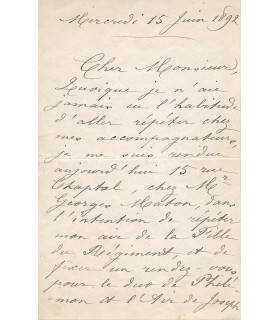 Mercredi 15 Juin 1892
Cher Monsieur,
Quoique je n'aie
jamais eu l'habitude
d'aller répéter chez
mes accompagnateurs,
je me suis rendue
aujourd'hui 15 rue
Chaptal, chez Mr
Georges Maton, dans
l'intention de répéter
mon air de la Fille
du Régiment, et de
fixer un rendez-vous
pour le duo de Philé-
mon et l'Air de Joseph